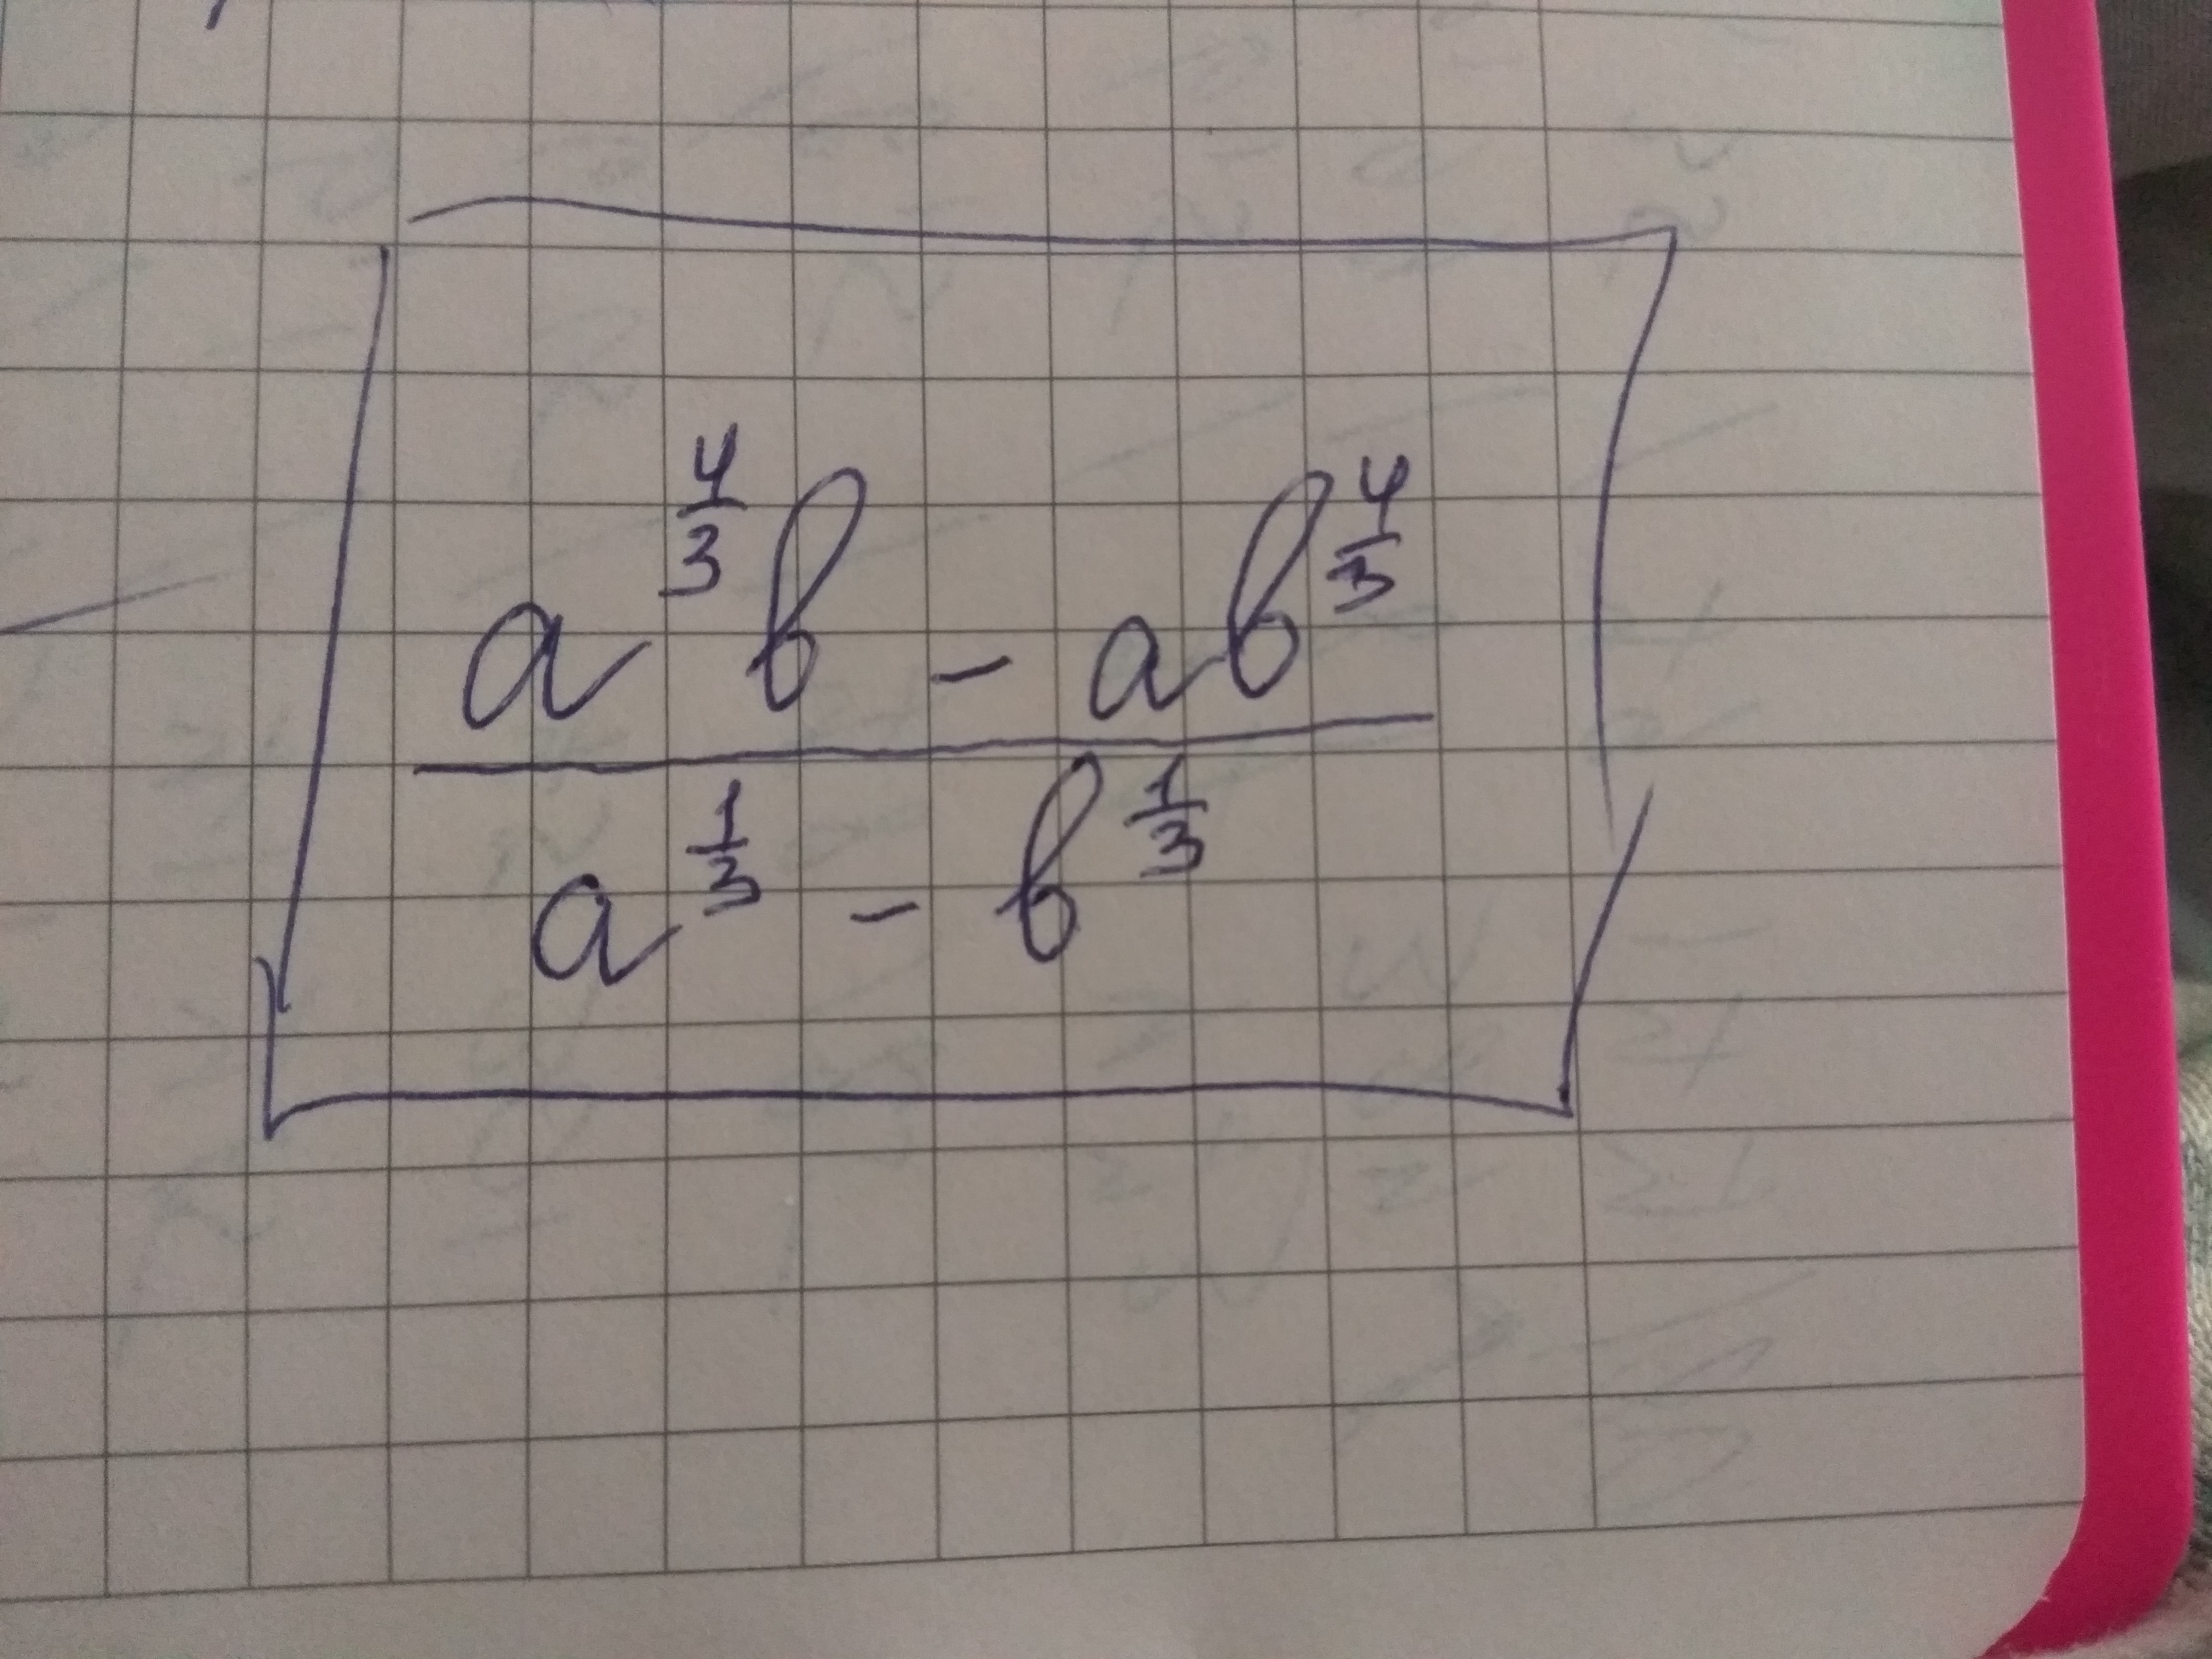 a^{\frac{4}{3}} b - ab^{\frac{4}{3}}
a^{\frac{1}{3}} - b^{\frac{1}{3}}